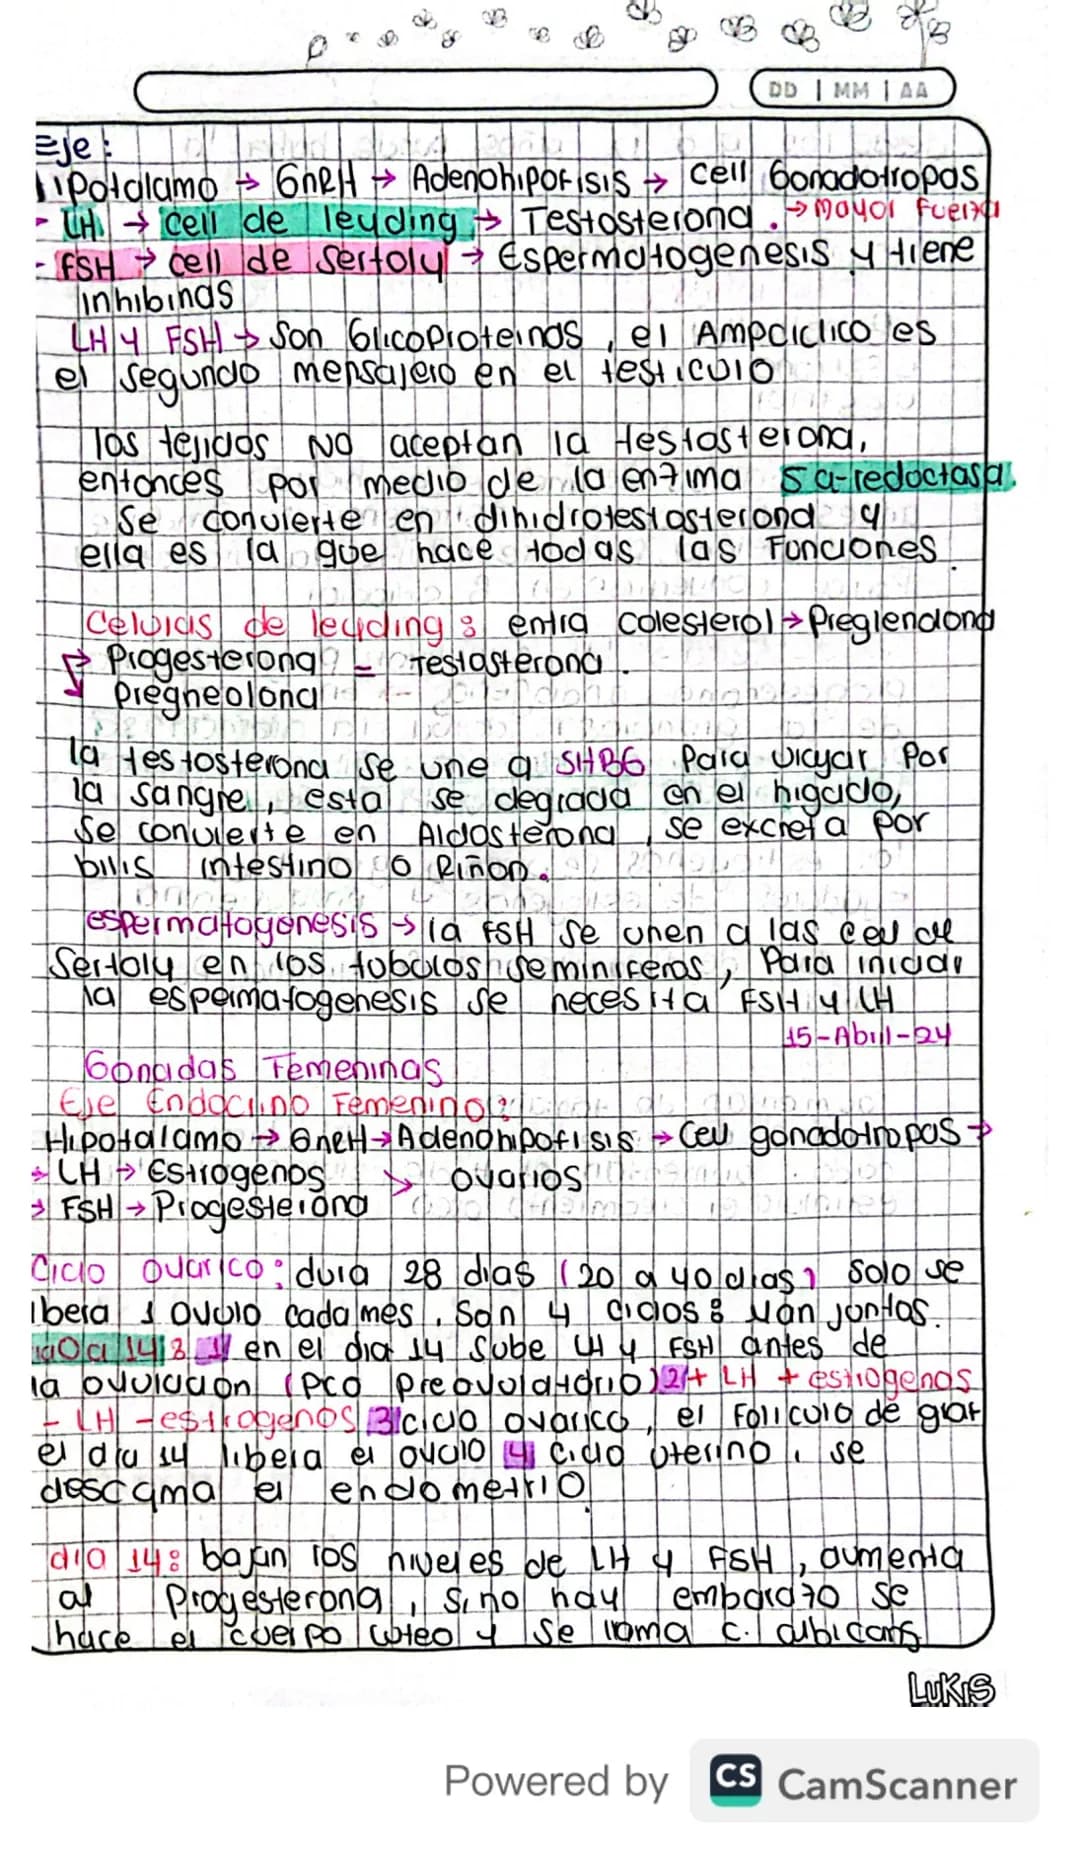 DD | MM | AA
Eje:
Hipotalamo → GnRH → Adenohipofisis → Cell Gonadotropas
- LH → cell de leyding → Testosterona. → mayor fuerza
- FSH → cell de Sertoly → Espermatogenesis y tiene
inhibinas
LH y FSH → Son Glicoproteinas, el Ampciclico es
el segundo mensajero en el testiculo
los tejidos NO aceptan la testosterona,
entonces por medio de la enzima 5 α-redoctasa.
Se convierte en dihidrotestosterona y
ella es la que hace todas las Funciones.
Celulas de leyding: entra Colesterol → Preglenolona
Progesterona = Testosterona.
Pregneolona
la testosterona se une a SHBG Para viajar Por
la sangre, esta se degrada en el higado,
Se convierte en Aldosterona, se excreta por
bilis intestino o Riñon.
espermatogenesis → la FSH se unen a las cell de
Sertoly en los tobulos seminiferos, Para iniciar
la espermatogenesis se necesita FSH y LH
15-Abril-24
Gonadas Femeninas
Eje Endocrino Femenino:
Hipotalamo → GnRH → Adenohipofisis → Cell gonadotropas →
→ LH → Estrogenos ↘ ovarios
→ FSH → Progesterona
Ciclo Ovarico: dura 28 dias (20 a 40 dias) Solo se
libera 1 ovulo cada mes. Son 4 ciclos: van juntos.
0 a 14: 1/ en el dia 14 Sube LH y FSH antes de
la ovulacion (Pico Preovulatorio) 2/ + LH + estrogenos
- LH - estrogenos 3/ ciclo ovarico, el Foliculo de graf
el dia 14 libera el ovulo 4/ Ciclo uterino, se
descama el endometrio.
dia 14: bajan los niveles de LH y FSH, aumenta
al Progesterona, Si no hay embarazo se
hace el cuerpo luteo y se llama c. albicans
LUKIS
Powered by CS CamScanner